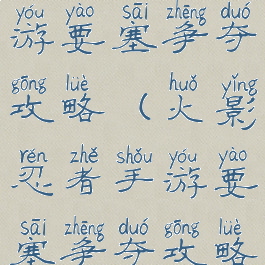 yóu yào sāi zhēng duó
游要塞争夺
gōng lüè huǒ yǐng
攻略（火影
rěn zhě shǒu yóu yào
忍者手游要
sāi zhēng duó gōng lüè
塞争夺攻略